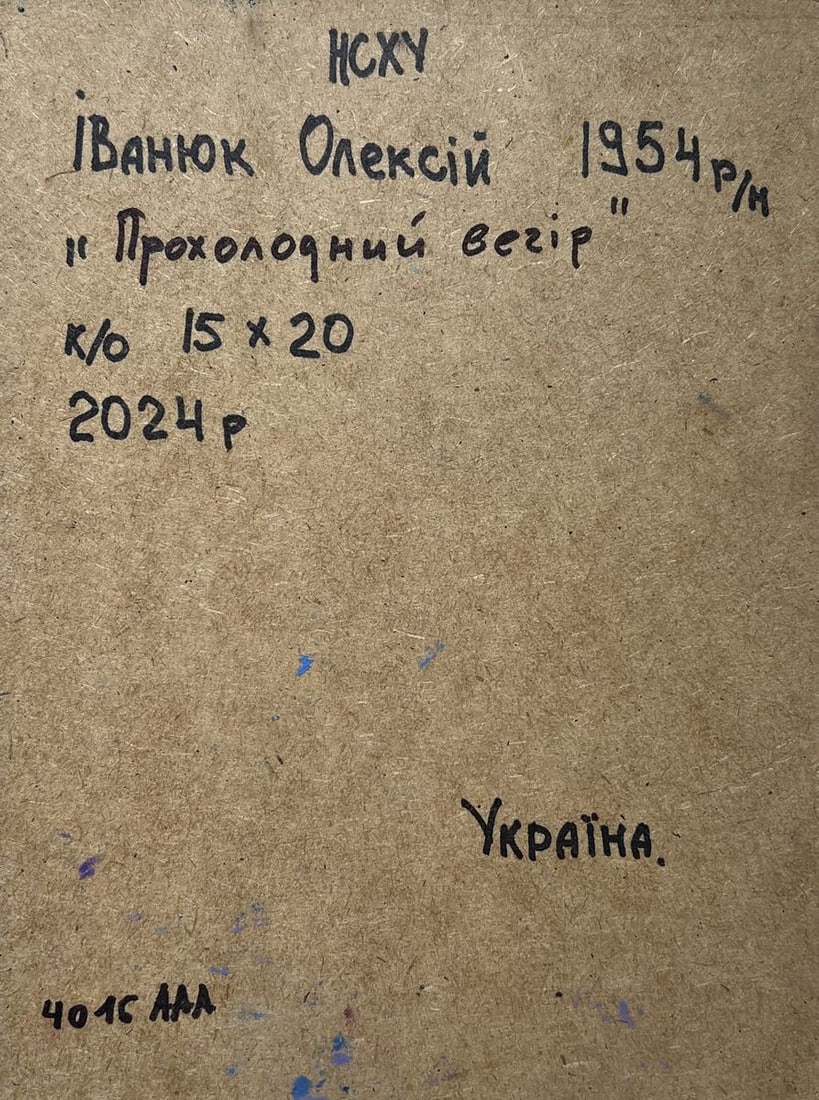 НСХУ
Іванюк Олексій 1954 р/н
"Прохолодний вечір"
к/о 15 х 20
2024 р
Україна.
4016 ААА